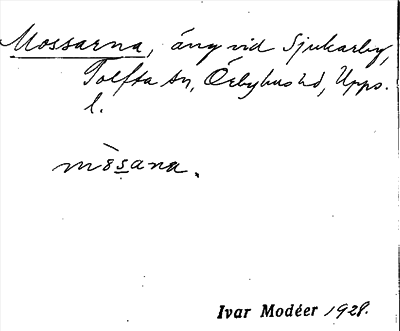 Mossarna, äng vid Sjukarby,
Tolfta sn, Örbyhus hd, Upps.
l.
mòsana.
Ivar Modéer 1928.